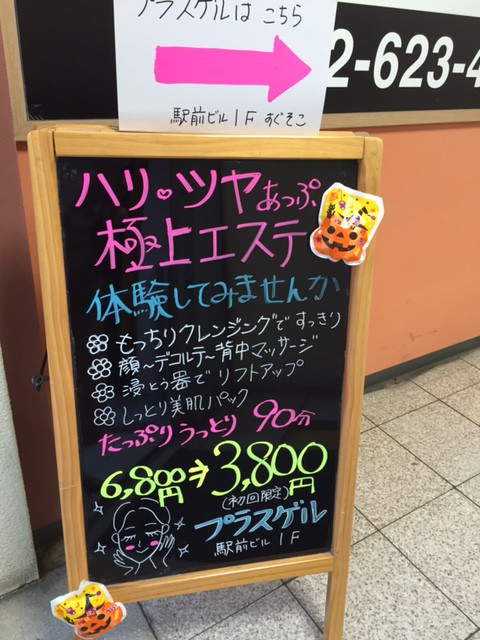 プラスゲルは こちら
2-623-4
駅前ビル1F すぐそこ
ハリ・ツヤあっぷ
極上エステ
体験してみませんか
もっちりクレンジングで すっきり
顔〜デコルテ〜背中マッサージ
浸とう器で リフトアップ
しっとり美肌パック
たっぷり うっとり 90分
6,800円→3,800円
(初回限定)
プラスゲル
駅前ビル 1F